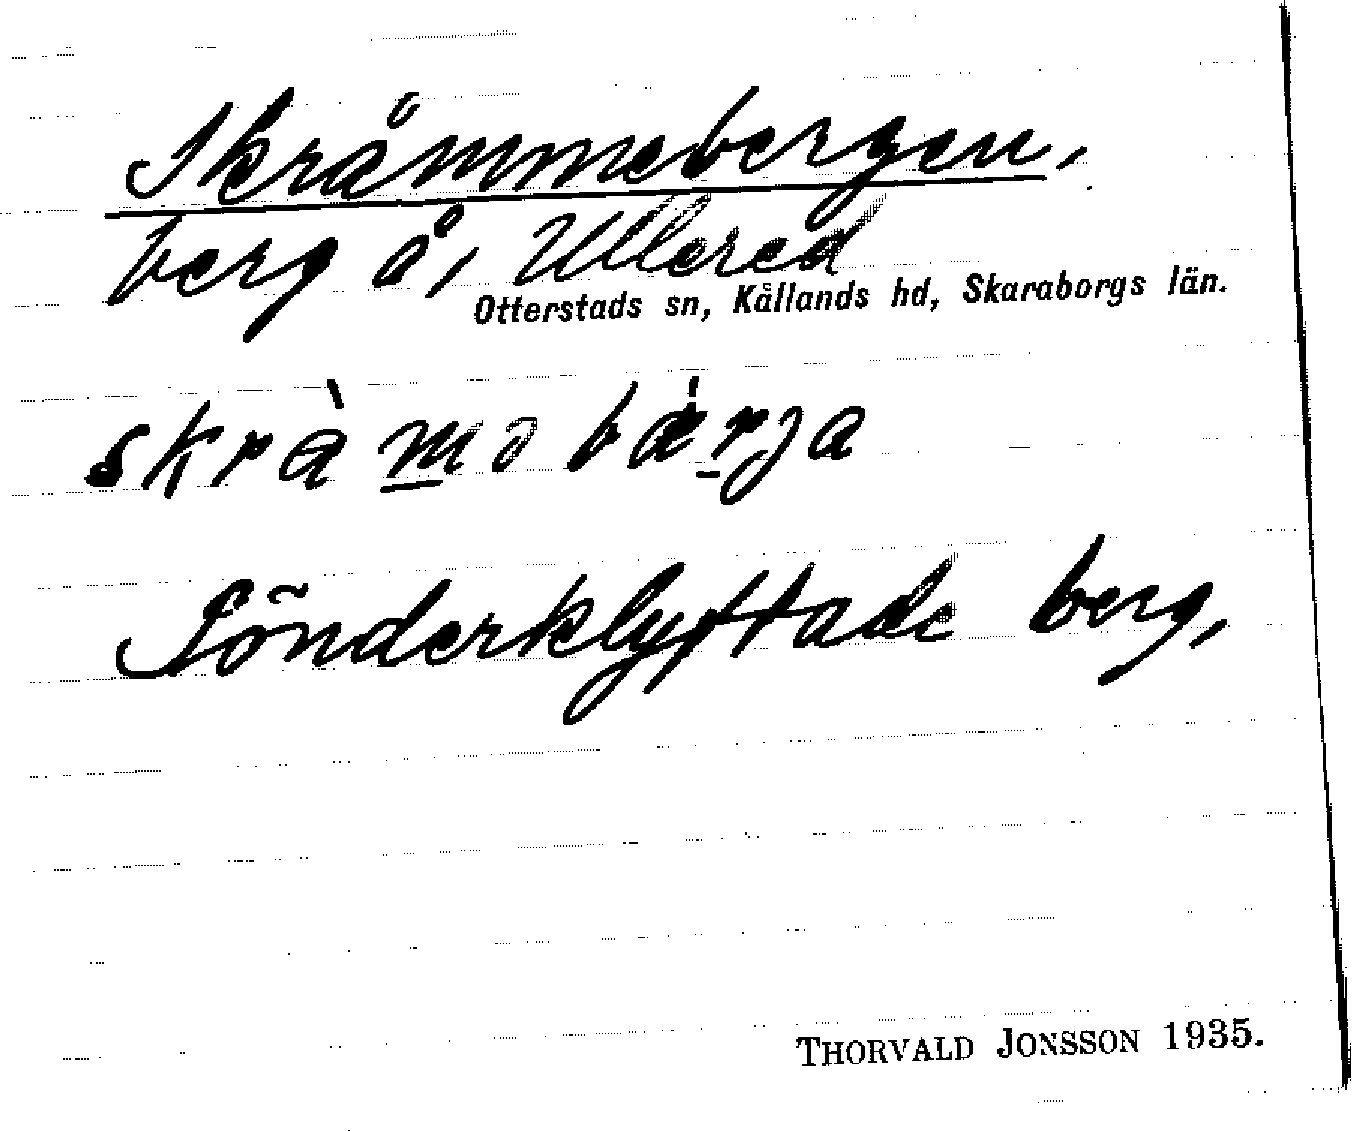 Skråmmebergen,
berg å, Ullered
Otterstads sn, Kållands hd, Skaraborgs län.
skràmə bæ̀rja
Sönderklyftade berg,
THORVALD JONSSON 1935.